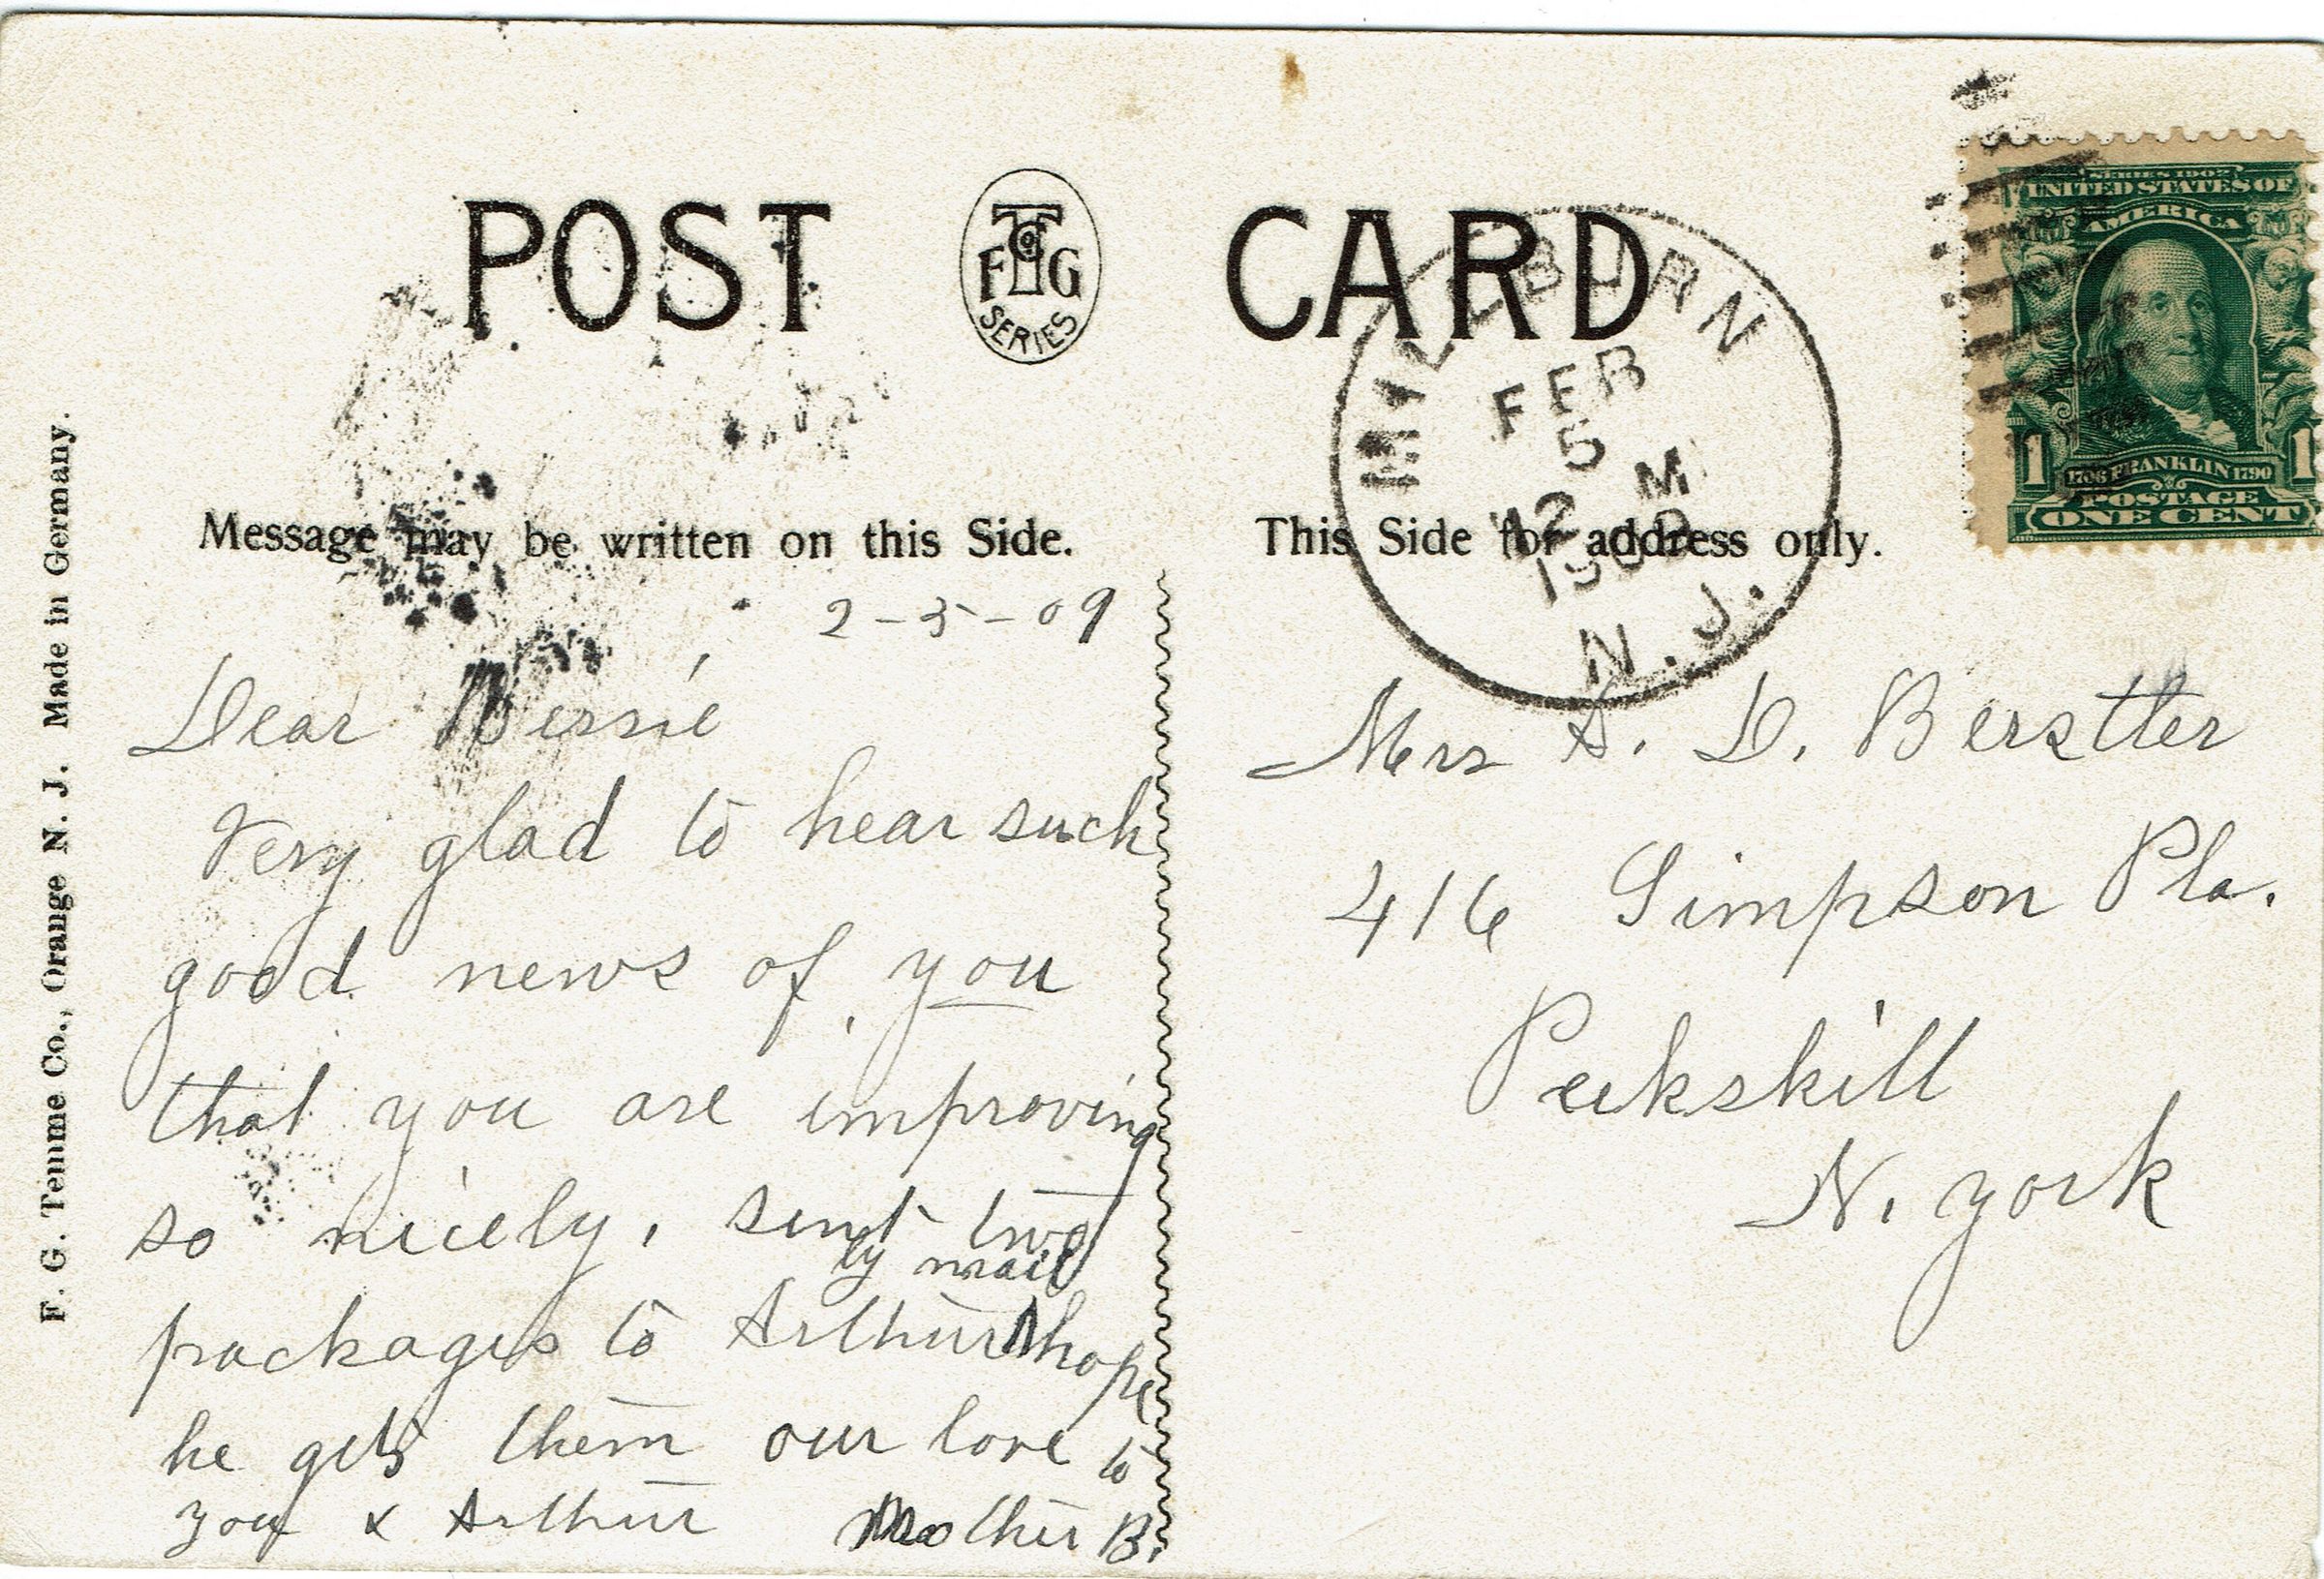 POST CARD
F T Co G
SERIES
MILLBURN
FEB
5
12 M
1909
N.J.
SERIES 1902
UNITED STATES OF
AMERICA
1 1
1706 FRANKLIN 1790
POSTAGE
ONE CENT
F. G. Temme Co., Orange N. J. Made in Germany.
Message may be written on this Side.
2-5-09
Dear Bessie
Very glad to hear such
good news of you
that you are improving
so nicely, sent two
by mail
packages to Arthur hope
he gets them our love to
you x Arthur Mother B.
This Side for address only.
Mrs A. D. Berstler
416 Simpson Pla.
Peekskill
N. York